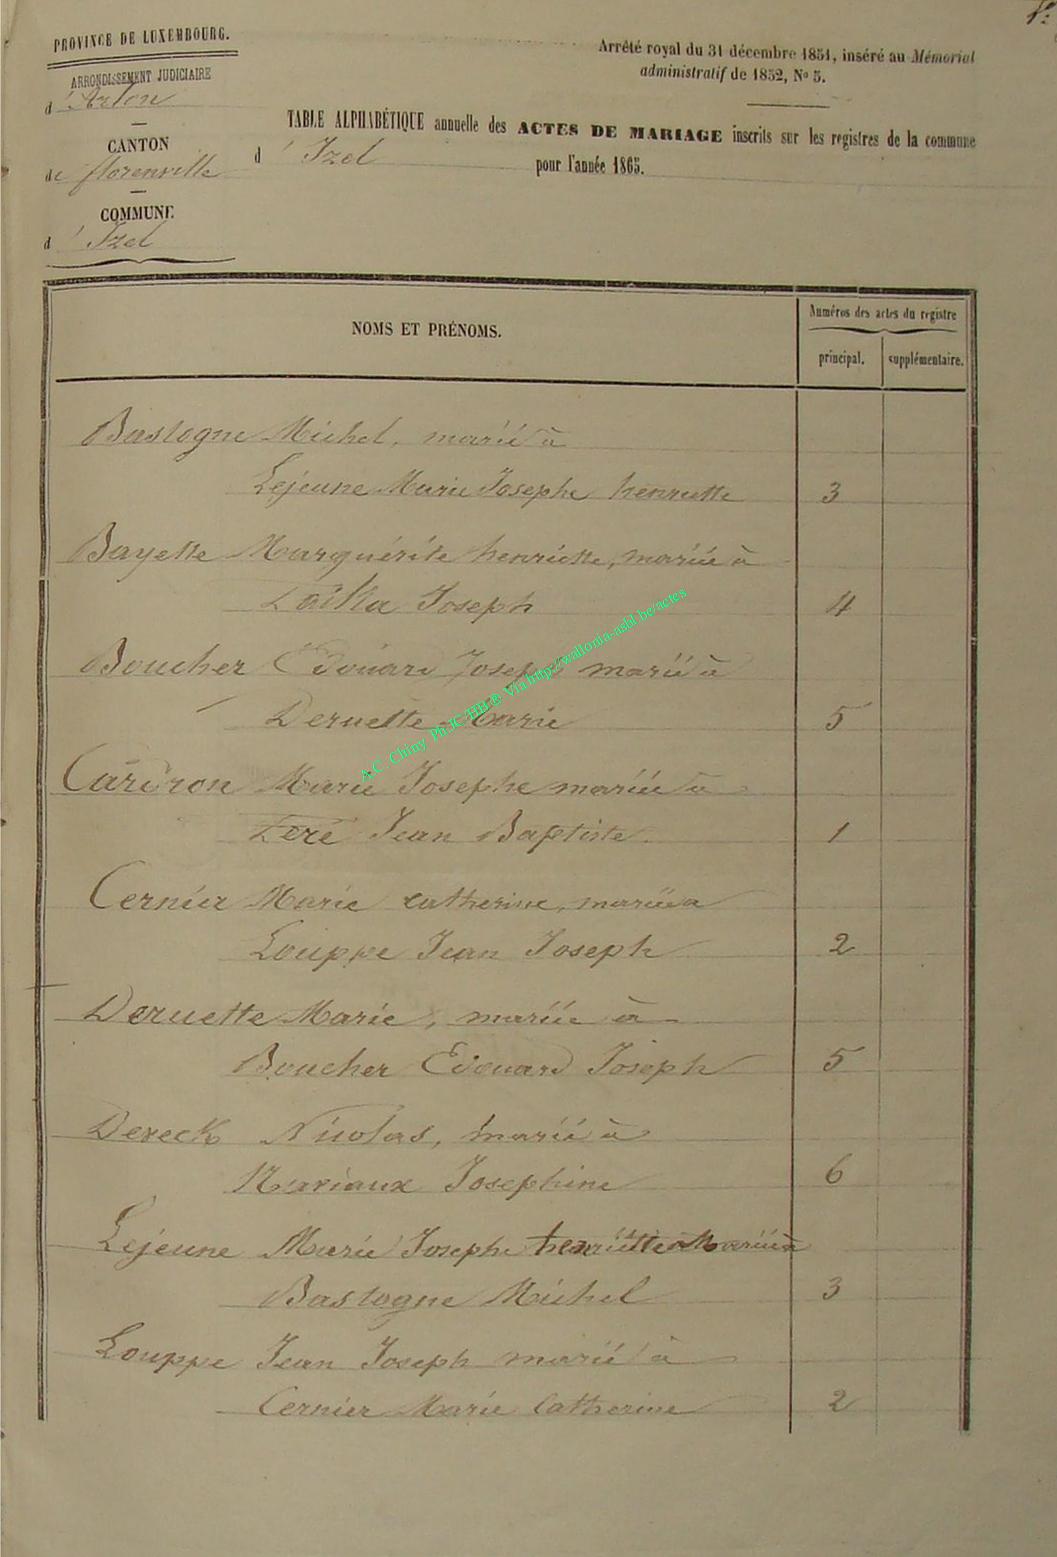 PROVINCE DE LUXEMBOURG.
ARRONDISSEMENT JUDICIAIRE
d'Arlon
CANTON
de florenville
COMMUNE
d'Izel
Arrêté royal du 31 décembre 1851, inséré au Mémorial
administratif de 1852, No 5.
TABLE ALPHABÉTIQUE annuelle des ACTES DE MARIAGE inscrits sur les registres de la commune
d'Izel pour l'année 1865.
NOMS ET PRÉNOMS.
Numéros des actes du registre
principal. supplémentaire.
Bastogne Michel, marié à
Lejeune Marie Josephe henriette 3
Bayette Marguérite henriette, mariée à
Joseph 4
Boucher Edouard Joseph marié à
Deruette Marie 5
Cardron Marie Josephe mariée à
Jean Baptiste 1
Cernier Marie catherine, mariée a
Louppe Jean Joseph 2
Deruette Marie, mariée à
Boucher Edouard Joseph 5
Dereck Nicolas, marié à
Mariaux Josephine 6
Lejeune Marie Josephe henriette Mariée à
Bastogne Michel 3
Louppe Jean Joseph marié à
Cernier Marie Catherine 2
A.C. Chiny Ph.JC/HB® Via http://wallonia-asbl.be/actes